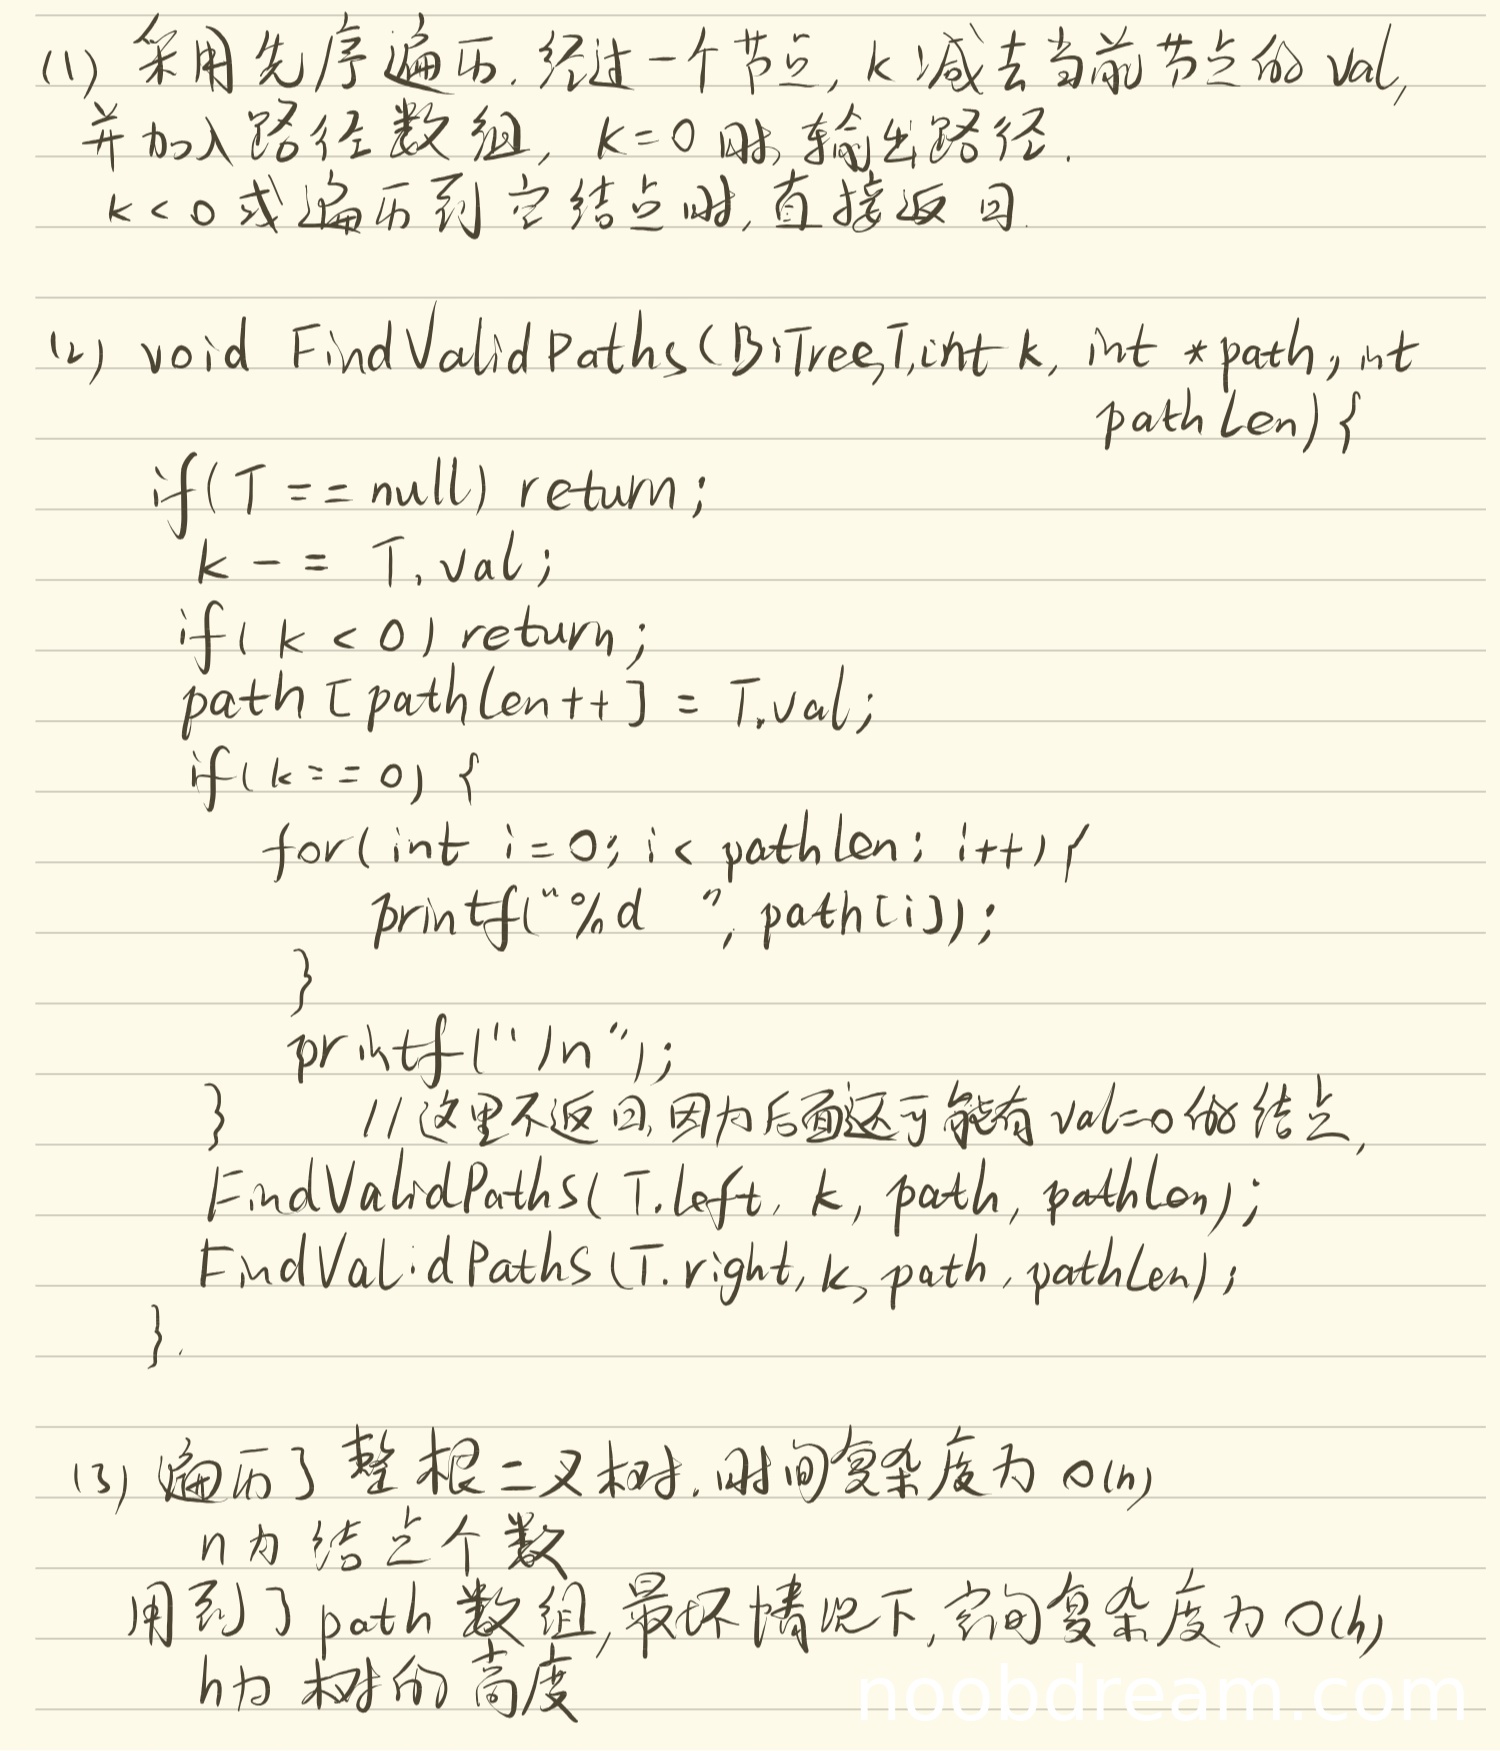 (1) 采用先序遍历.经过一个节点, k减去当前节点的val,
并加入路径数组, k=0时,输出路径.
k<0或遍历到空结点时,直接返回.
(2) void FindValidPaths(BiTree,T,int k, int *path, int
pathLen){
if(T == null) return;
k -= T.val;
if(k < 0) return;
path[pathLen++] = T.val;
if(k == 0) {
for(int i=0; i< pathLen; i++){
printf("%d ", path[i]);
}
printf("/n");
} //这里不返回,因为后面还可能有val=0的结点,
FindValidPaths(T.left, k, path, pathLen);
FindValidPaths(T.right, k, path, pathLen);
}.
(3) 遍历了整根二叉树.时间复杂度为O(n)
n为结点个数
用到了path数组,最坏情况下,空间复杂度为O(h)
h为树的高度
noobdream.com